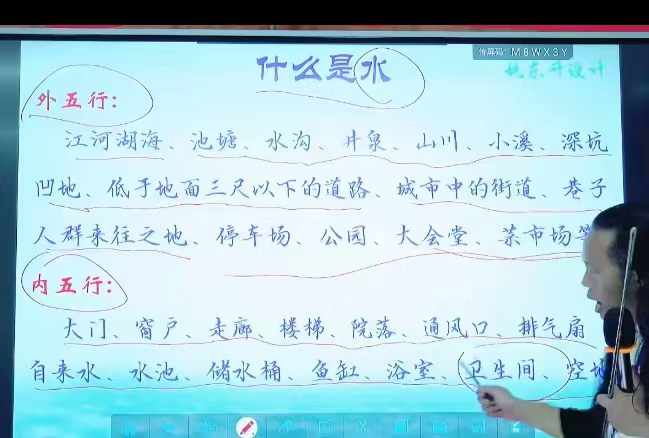 传屏码: M8WX3Y
什么是水
外五行:
江河湖海、池塘、水沟、井泉、山川、小溪、深坑
凹地、低于地面三尺以下的道路、城市中的街道、巷子
人群来往之地、停车场、公园、大会堂、菜市场等
内五行:
大门、窗户、走廊、楼梯、院落、通风口、排气扇
自来水、水池、储水桶、鱼缸、浴室、卫生间、空地